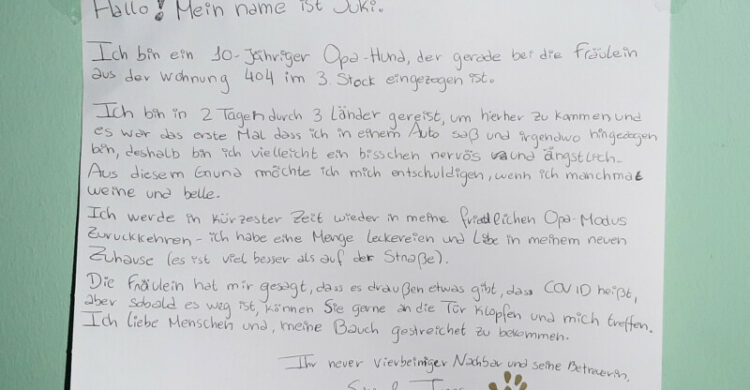 Hallo! Mein name ist Juki.
Ich bin ein 10-Jähriger Opa-Hund, der gerade bei die Fräulein
aus der Wohnung 404 im 3. Stock eingezogen ist.
Ich bin in 2 Tagen durch 3 Länder gereist, um hierher zu kommen und
es war das erste Mal dass ich in einem Auto saß und irgendwo hingezogen
bin, deshalb bin ich vielleicht ein bisschen nervös und ängstlich.
Aus diesem Grund möchte ich mich entschuldigen, wenn ich manchmal
weine und belle.
Ich werde in kürzester Zeit wieder in meine friedlichen Opa-Modus
zurückkehren - ich habe eine Menge leckereien und Liebe in meinem neuen
Zuhause (es ist viel besser als auf der Straße).
Die Fräulein hat mir gesagt, dass es draußen etwas gibt, dass COVID heißt,
aber sobald es weg ist, können Sie gerne an die Tür klopfen und mich treffen.
Ich liebe Menschen und, meine Bauch gestreichet zu bekommen.
Ihr neuer vierbeiniger Nachbar und seine Betreuerin,